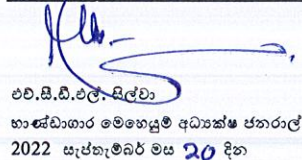 එච්.සී.ඩී.එල්. සිල්වා
භාණ්ඩාගාර මෙහෙයුම් අධ්‍යක්ෂ ජනරාල්
2022 සැප්තැම්බර් මස 20 දින